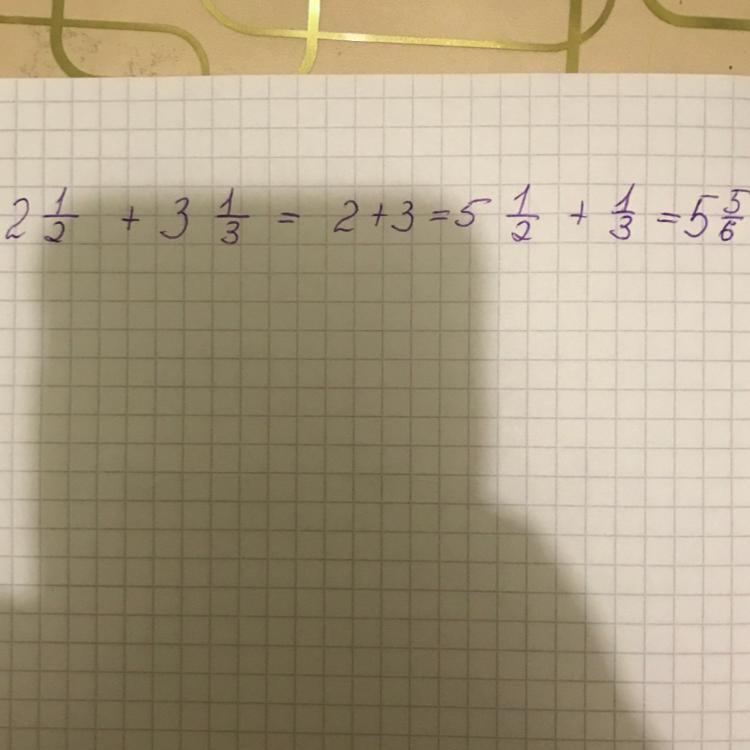 2 1/2 + 3 1/3 = 2+3 =5 1/2 + 1/3 =5 5/6